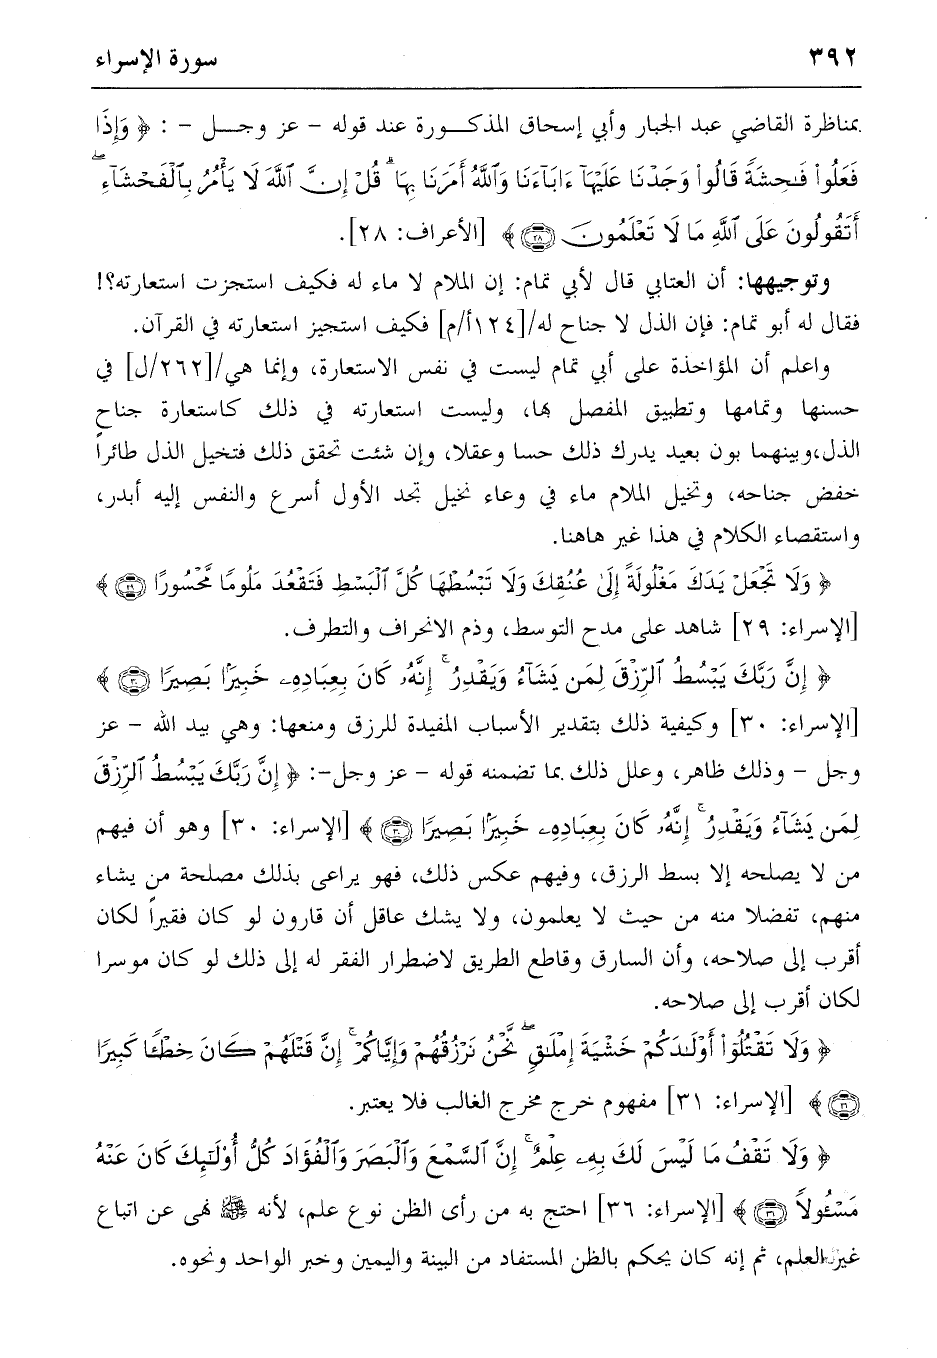 ٣٩٢ سورة الإسراء
بمناظرة القاضي عبد الجبار وأبي إسحاق المذكورة عند قوله - عز وجل - : ﴿ وَإِذَا
فَعَلُوا۟ فَـٰحِشَةً قَالُوا۟ وَجَدْنَا عَلَيْهَآ ءَابَآءَنَا وَٱللَّهُ أَمَرَنَا بِهَا ۗ قُلْ إِنَّ ٱللَّهَ لَا يَأْمُرُ بِٱلْفَحْشَآءِ ۖ
أَتَقُولُونَ عَلَى ٱللَّهِ مَا لَا تَعْلَمُونَ ٢٨ ﴾ [الأعراف: ٢٨].
وتوجيهها: أن العتابي قال لأبي تمام: إن الملام لا ماء له فكيف استجزت استعارته؟!
فقال له أبو تمام: فإن الذل لا جناح له/[١٢٤أ/م] فكيف استجيز استعارته في القرآن.
واعلم أن المؤاخذة على أبي تمام ليست في نفس الاستعارة، وإنما هي/[٢٦٢/ل] في
حسنها وتمامها وتطبيق المفصل بها، وليست استعارته في ذلك كاستعارة جناح
الذل،وبينهما بون بعيد يدرك ذلك حسا وعقلا، وإن شئت تحقق ذلك فتخيل الذل طائراً
خفض جناحه، وتخيل الملام ماء في وعاء نخيل تجد الأول أسرع والنفس إليه أبدر،
واستقصاء الكلام في هذا غير هاهنا.
﴿ وَلَا تَجْعَلْ يَدَكَ مَغْلُولَةً إِلَىٰ عُنُقِكَ وَلَا تَبْسُطْهَا كُلَّ ٱلْبَسْطِ فَتَقْعُدَ مَلُومًا مَّحْسُورًا ٢٩ ﴾
[الإسراء: ٢٩] شاهد على مدح التوسط، وذم الانحراف والتطرف.
﴿ إِنَّ رَبَّكَ يَبْسُطُ ٱلرِّزْقَ لِمَن يَشَآءُ وَيَقْدِرُ ۚ إِنَّهُۥ كَانَ بِعِبَادِهِۦ خَبِيرًۢا بَصِيرًا ٣٠ ﴾
[الإسراء: ٣٠] وكيفية ذلك بتقدير الأسباب المفيدة للرزق ومنعها: وهي بيد الله - عز
وجل - وذلك ظاهر، وعلل ذلك بما تضمنه قوله - عز وجل-: ﴿ إِنَّ رَبَّكَ يَبْسُطُ ٱلرِّزْقَ
لِمَن يَشَآءُ وَيَقْدِرُ ۚ إِنَّهُۥ كَانَ بِعِبَادِهِۦ خَبِيرًۢا بَصِيرًا ٣٠ ﴾ [الإسراء: ٣٠] وهو أن فيهم
من لا يصلحه إلا بسط الرزق، وفيهم عكس ذلك، فهو يراعى بذلك مصلحة من يشاء
منهم، تفضلا منه من حيث لا يعلمون، ولا يشك عاقل أن قارون لو كان فقيراً لكان
أقرب إلى صلاحه، وأن السارق وقاطع الطريق لاضطرار الفقر له إلى ذلك لو كان موسرا
لكان أقرب إلى صلاحه.
﴿ وَلَا تَقْتُلُوٓا۟ أَوْلَـٰدَكُمْ خَشْيَةَ إِمْلَـٰقٍ ۖ نَّحْنُ نَرْزُقُهُمْ وَإِيَّاكُمْ ۚ إِنَّ قَتْلَهُمْ كَانَ خِطْـًٔا كَبِيرًا
٣١ ﴾ [الإسراء: ٣١] مفهوم خرج مخرج الغالب فلا يعتبر.
﴿ وَلَا تَقْفُ مَا لَيْسَ لَكَ بِهِۦ عِلْمٌ ۚ إِنَّ ٱلسَّمْعَ وَٱلْبَصَرَ وَٱلْفُؤَادَ كُلُّ أُو۟لَـٰٓئِكَ كَانَ عَنْهُ
مَسْـُٔولًا ٣٦ ﴾ [الإسراء: ٣٦] احتج به من رأى الظن نوع علم، لأنه ﷺ نهى عن اتباع
غير العلم، ثم إنه كان يحكم بالظن المستفاد من البينة واليمين وخبر الواحد ونحوه.